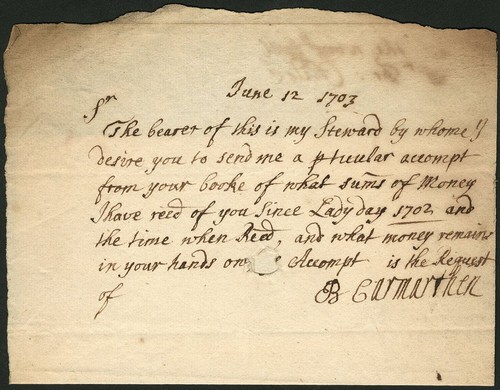 June 12 1703
Sr
The bearer of this is my Steward by whome I
desire you to send me a pticular accompt
from your booke of what sums of Money
I have recd of you Since Lady day 1702 and
the time when Recd, and what money remains
in your hands on Accompt is the Request
of B Carmarthen